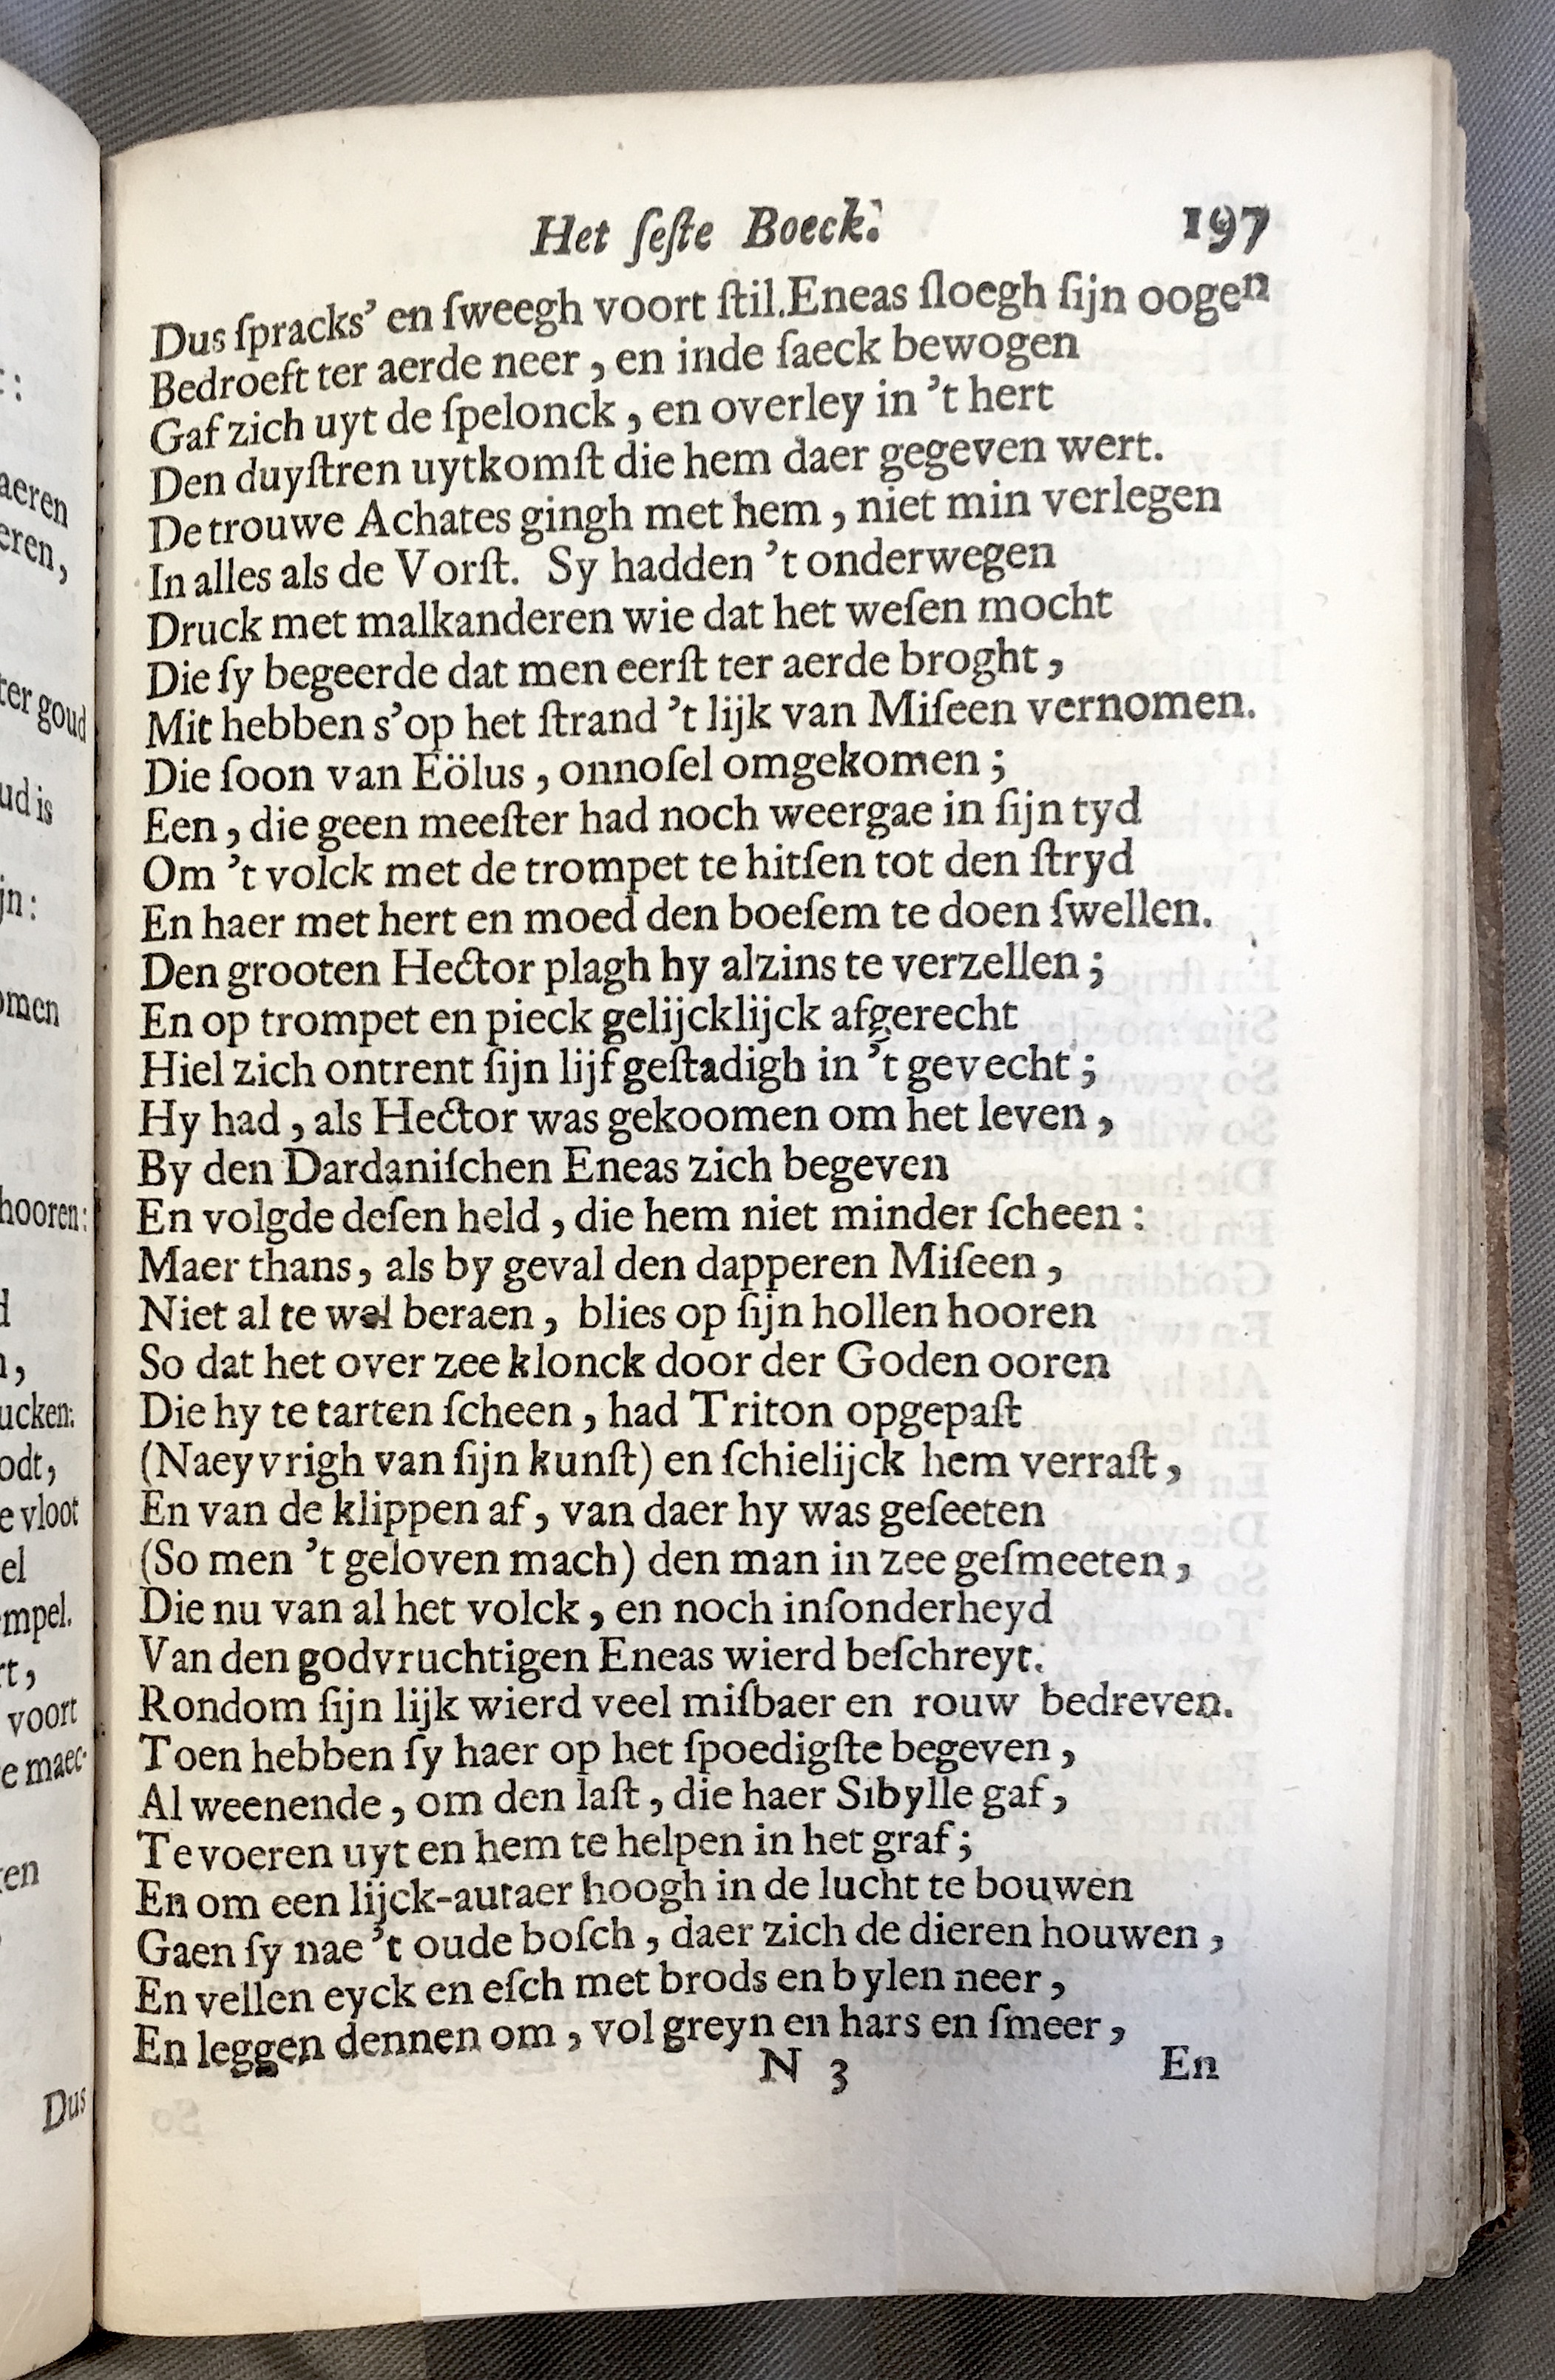 Het ſeſte Boeck. 197
Dus ſpracks' en ſweegh voort ſtil. Eneas ſloegh ſijn oogen
Bedroeft ter aerde neer, en inde ſaeck bewogen
Gaf zich uyt de ſpelonck, en overley in 't hert
Den duyſtren uytkomſt die hem daer gegeven wert.
De trouwe Achates gingh met hem, niet min verlegen
In alles als de Vorſt. Sy hadden 't onderwegen
Druck met malkanderen wie dat het weſen mocht
Die ſy begeerde dat men eerſt ter aerde broght,
Mit hebben s'op het ſtrand 't lijk van Miſeen vernomen.
Die ſoon van Eölus, onnoſel omgekomen;
Een, die geen meeſter had noch weergae in ſijn tyd
Om 't volck met de trompet te hitſen tot den ſtryd
En haer met hert en moed den boeſem te doen ſwellen.
Den grooten Hector plagh hy alzins te verzellen;
En op trompet en pieck gelijcklijck afgerecht
Hiel zich ontrent ſijn lijf geſtadigh in 't gevecht;
Hy had, als Hector was gekoomen om het leven,
By den Dardaniſchen Eneas zich begeven
En volgde deſen held, die hem niet minder ſcheen:
Maer thans, als by geval den dapperen Miſeen,
Niet al te wel beraen, blies op ſijn hollen hooren
So dat het over zee klonck door der Goden ooren
Die hy te tarten ſcheen, had Triton opgepaſt
(Naeyvrigh van ſijn kunſt) en ſchielijck hem verraſt,
En van de klippen af, van daer hy was geſeeten
(So men 't geloven mach) den man in zee geſmeeten,
Die nu van al het volck, en noch inſonderheyd
Van den godvruchtigen Eneas wierd beſchreyt.
Rondom ſijn lijk wierd veel miſbaer en rouw bedreven.
Toen hebben ſy haer op het ſpoedigſte begeven,
Al weenende, om den laſt, die haer Sibylle gaf,
Te voeren uyt en hem te helpen in het graf;
En om een lijck-autaer hoogh in de lucht te bouwen
Gaen ſy nae 't oude boſch, daer zich de dieren houwen,
En vellen eyck en eſch met brods en bylen neer,
En leggen dennen om, vol greyn en hars en ſmeer,
N 3 En
aeren
eren,
ter goud
ud is
jn:
omen
hooren:
ucken:
odt,
e vloot
el
mpel.
rt,
voort
e maec-
en
Dus